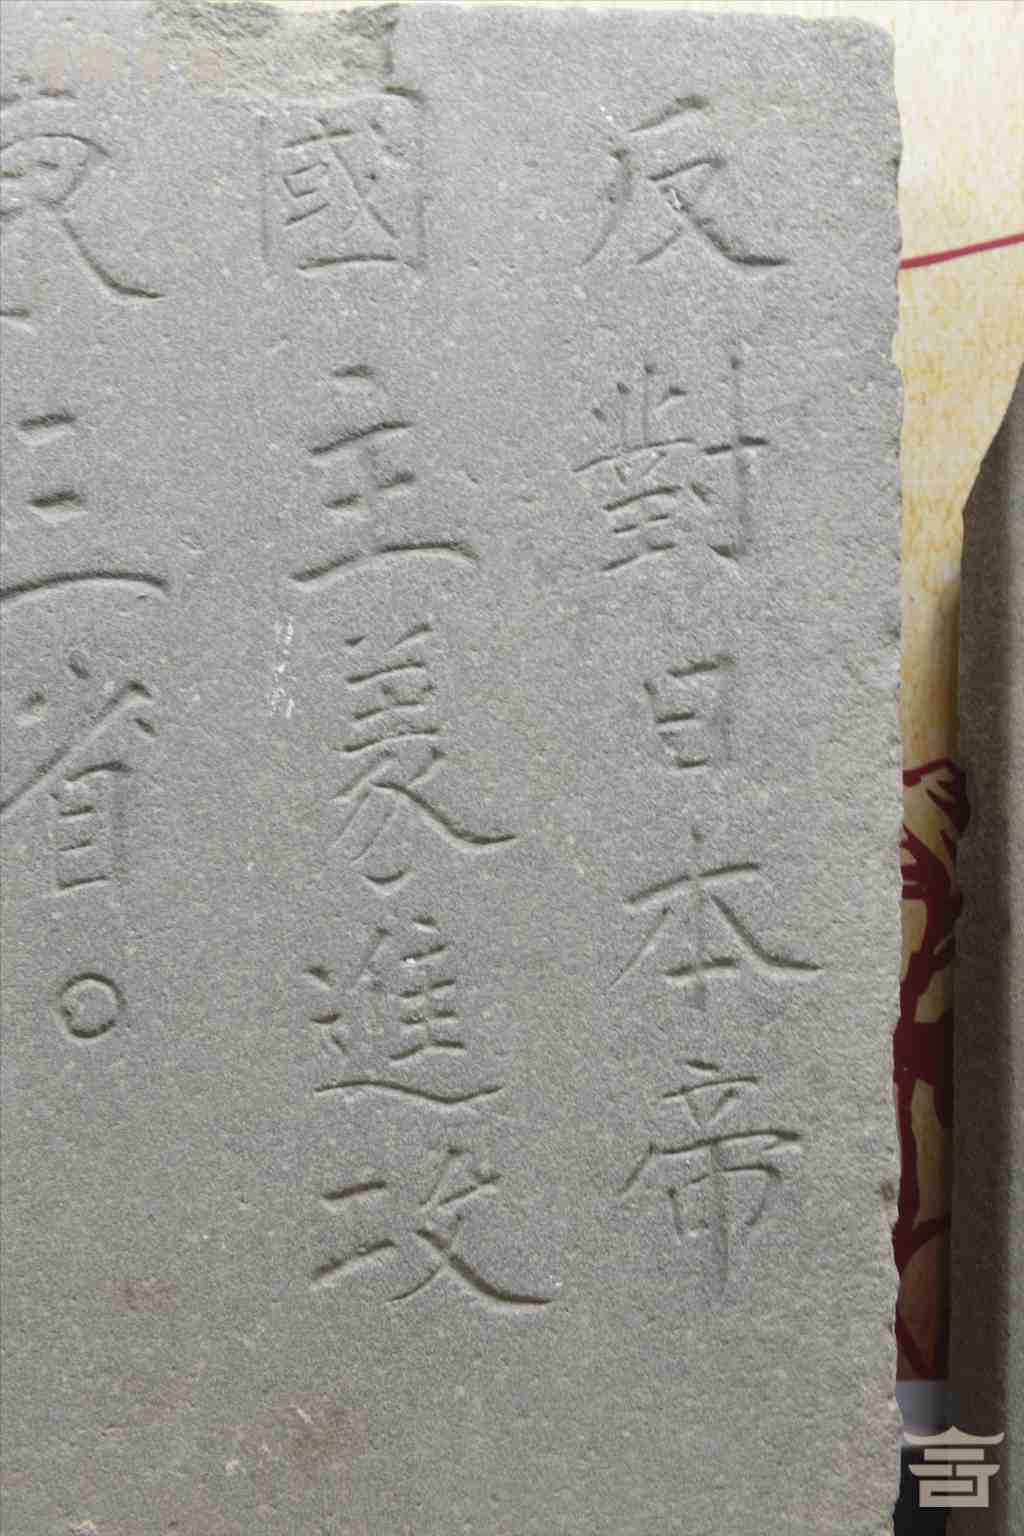 反對日本帝
國主義進攻
東三省。